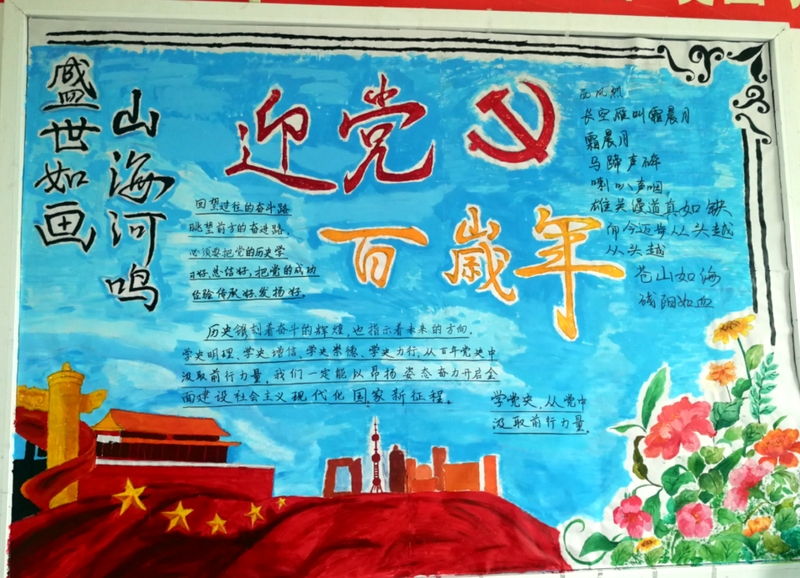 盛世如画
山海河鸣
迎党
百歲年
回望过往的奋斗路
眺望前方的奋进路
必须要把党的历史学
习好总结好,把党的成功
经验传承好发扬好。
历史镌刻着奋斗的辉煌,也指示着未来的方向,
学史明理、学史增信、学史崇德、学史力行,从百年党史中
汲取前行力量,我们一定能以昂扬姿态奋力开启全
面建设社会主义现代化国家新征程。
学党史,从党中
汲取前行力量。
西风烈
长空雁叫霜晨月
霜晨月
马蹄声碎
喇叭声咽
雄关漫道真如铁
而今迈步从头越
从头越
苍山如海
残阳如血